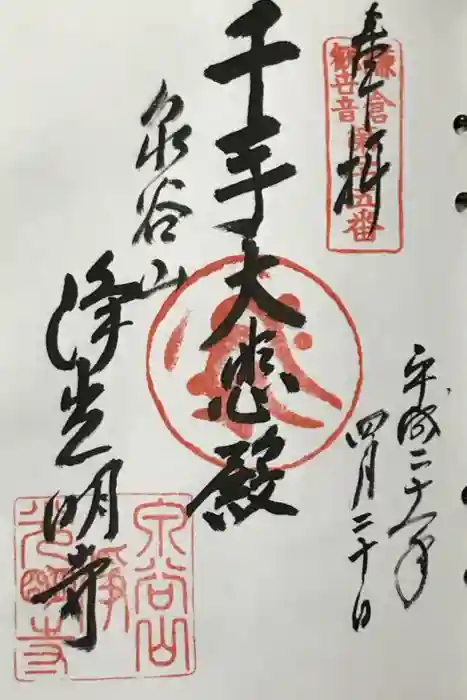 奉拝
鎌倉
観世音
第廿五番
平成二十八年
四月二十日
千手大悲殿
泉谷山
浄光明寺
泉谷山
淨
光明寺